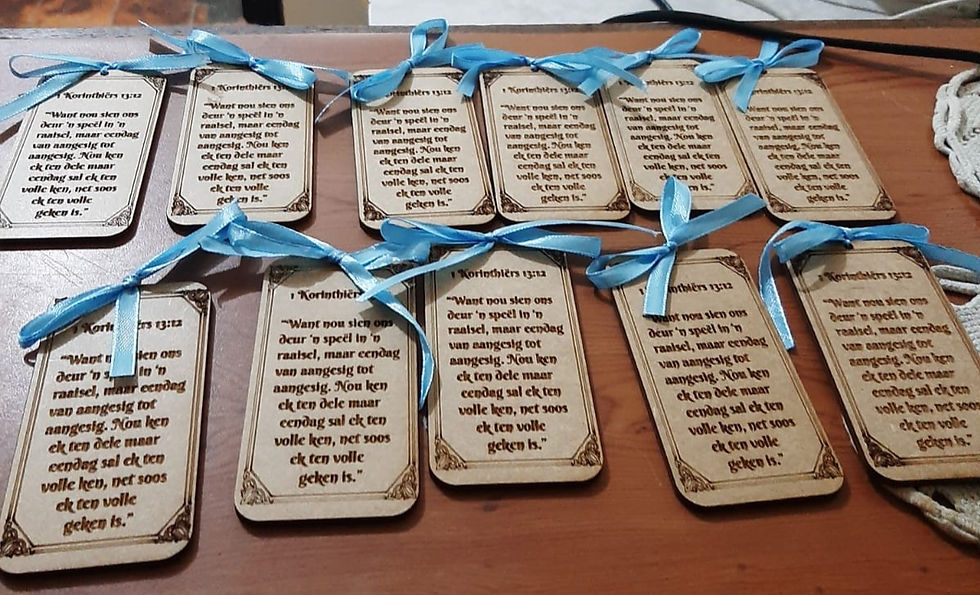 Korinthiërs 13:12
"Want nou sien ons
deur 'n speël in 'n
raaisel, maar eendag
van aangesig tot
aangesig. Nou ken
ek ten dele maar
eendag sal ek ten
volle ken, net soos
ek ten volle
geken is."
1 Korinthiërs 13:12
"Want nou sien ons
deur 'n speël in 'n
raaisel, maar eendag
van aangesig tot
aangesig. Nou ken
ek ten dele maar
eendag sal ek ten
volle ken, net soos
ek ten volle
geken is."
Korinthiërs 13:12
"Want nou sien ons
deur 'n speël in 'n
raaisel, maar eendag
van aangesig tot
aangesig. Nou ken
ek ten dele maar
eendag sal ek ten
volle ken, net soos
ek ten volle
geken is."
Korinthiërs 13:12
"Want nou sien ons
deur 'n speël in 'n
raaisel, maar eendag
van aangesig tot
aangesig. Nou ken
ek ten dele maar
eendag sal ek ten
volle ken, net soos
ek ten volle
geken is."
Korinthiërs 13:12
"Want nou sien ons
deur 'n speël in 'n
raaisel, maar eendag
van aangesig tot
aangesig. Nou ken
ek ten dele maar
eendag sal ek ten
volle ken, net soos
ek ten volle
geken is."
Korinthiërs 13:12
"Want nou sien ons
deur 'n speël in 'n
raaisel, maar eendag
van aangesig tot
aangesig. Nou ken
ek ten dele maar
eendag sal ek ten
volle ken, net soos
ek ten volle
geken is."
1 13:12
"Want sien ons
deur 'n speël in 'n
raaisel, maar eendag
van aangesig tot
aangesig. Nou ken
ek ten dele maar
eendag sal ek ten
volle ken, net soos
ek ten volle
geken is."
1 Korinthiërs
"Want nou sien ons
deur 'n speël in 'n
raaisel, maar eendag
van aangesig tot
aangesig. Nou ken
ek ten dele maar
eendag sal ek ten
volle ken, net soos
ek ten volle
geken is."
1 Korinthiërs 13:12
"Want nou sien ons
deur 'n speël in 'n
raaisel, maar eendag
van aangesig tot
aangesig. Nou ken
ek ten dele maar
eendag sal ek ten
volle ken, net soos
ek ten volle
geken is."
1 13:12
"Want nou sien ons
deur 'n speël in 'n
raaisel, maar eendag
van aangesig tot
aangesig. Nou ken
ek ten dele maar
eendag sal ek ten
volle ken, net soos
ek ten volle
geken is."
1 Korinthiërs 13:12
"Want nou sien ons
deur 'n speël in 'n
raaisel, maar eendag
van aangesig tot
aangesig. Nou ken
ek ten dele maar
eendag sal ek ten
volle ken, net soos
ek ten volle
geken is."